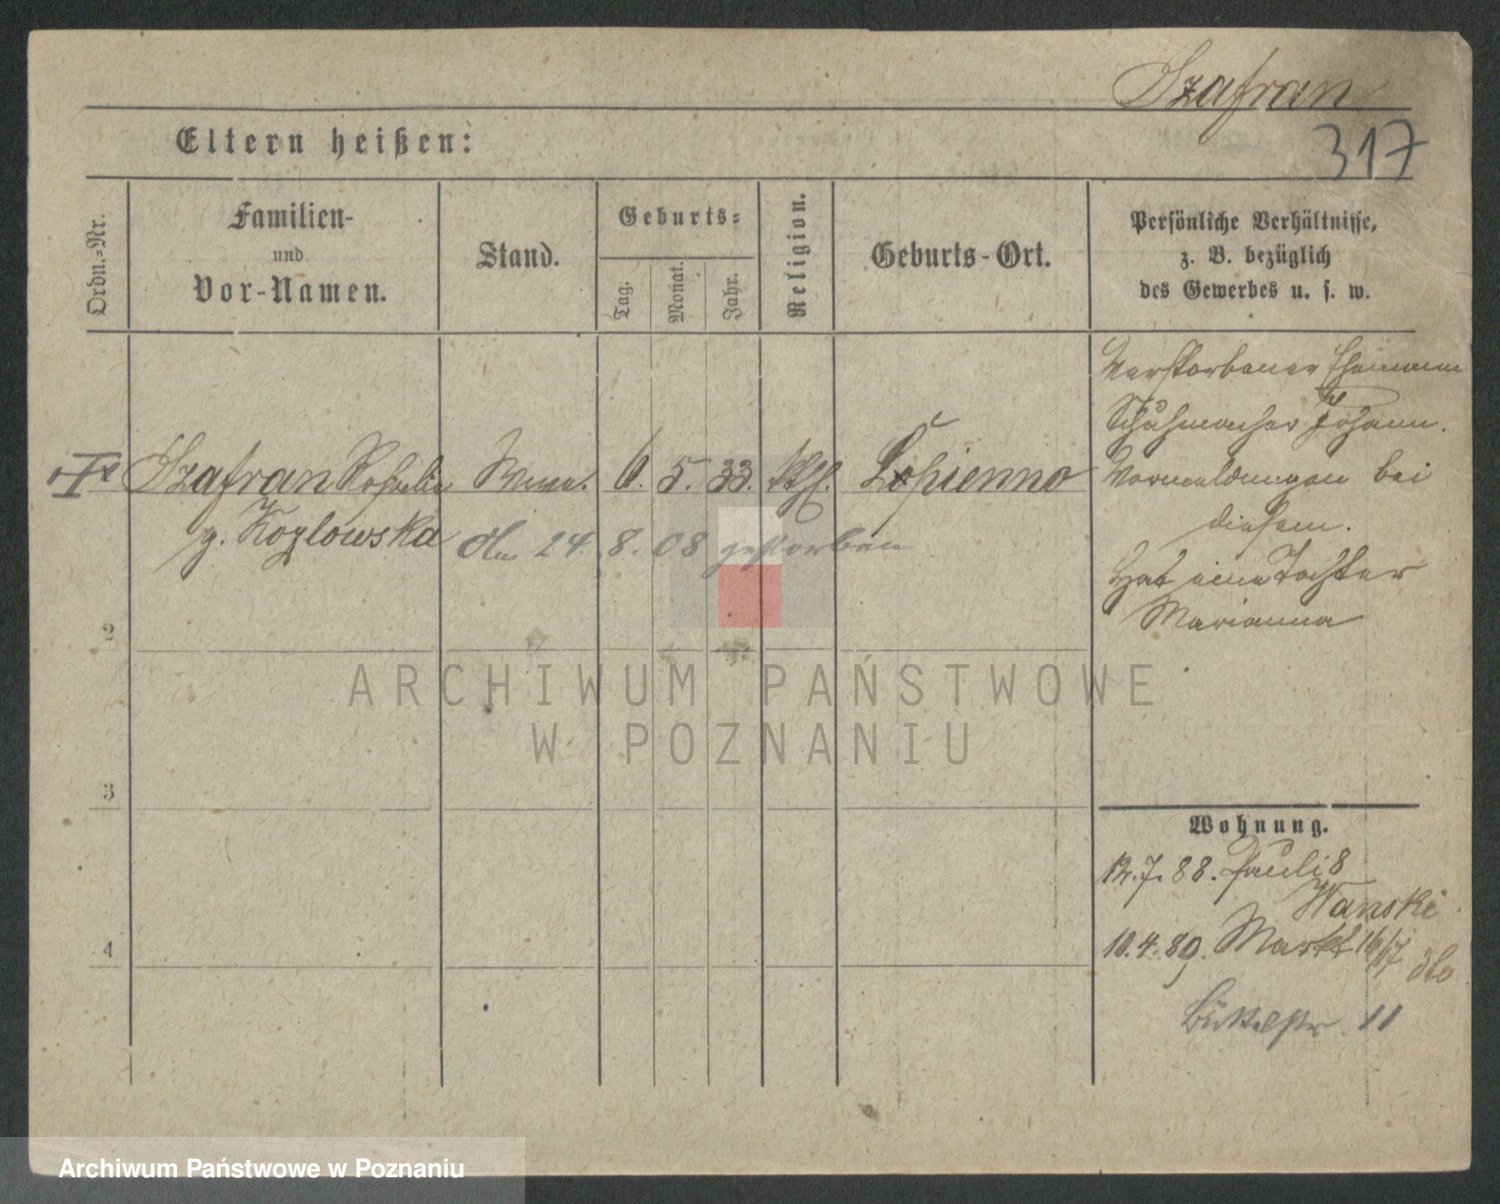 Szafran
317
Eltern heißen:
Ordn.-Nr.
Familien-
und
Vor-Namen.
Stand.
Geburts-
Tag.
Monat.
Jahr.
Religion.
Geburts-Ort.
Persönliche Verhältnisse,
z. B. bezüglich
des Gewerbes u. s. w.
Szafran Rosalie
g. Kozlowska
6. 5. 33. kth. Lopienno
24. 8. 08 gestorben
Verstorbener Ehemann
Schuhmacher Johann.
Vormeldungen bei
diesem.
Hat eine Tochter
Marianna
2
3
4
Wohnung.
12.7.88. Pauli 8
Wanski
10.4.89. Markt 16/17
dto
Büttelstr. 11
ARCHIWUM PAŃSTWOWE
W POZNANIU
Archiwum Państwowe w Poznaniu